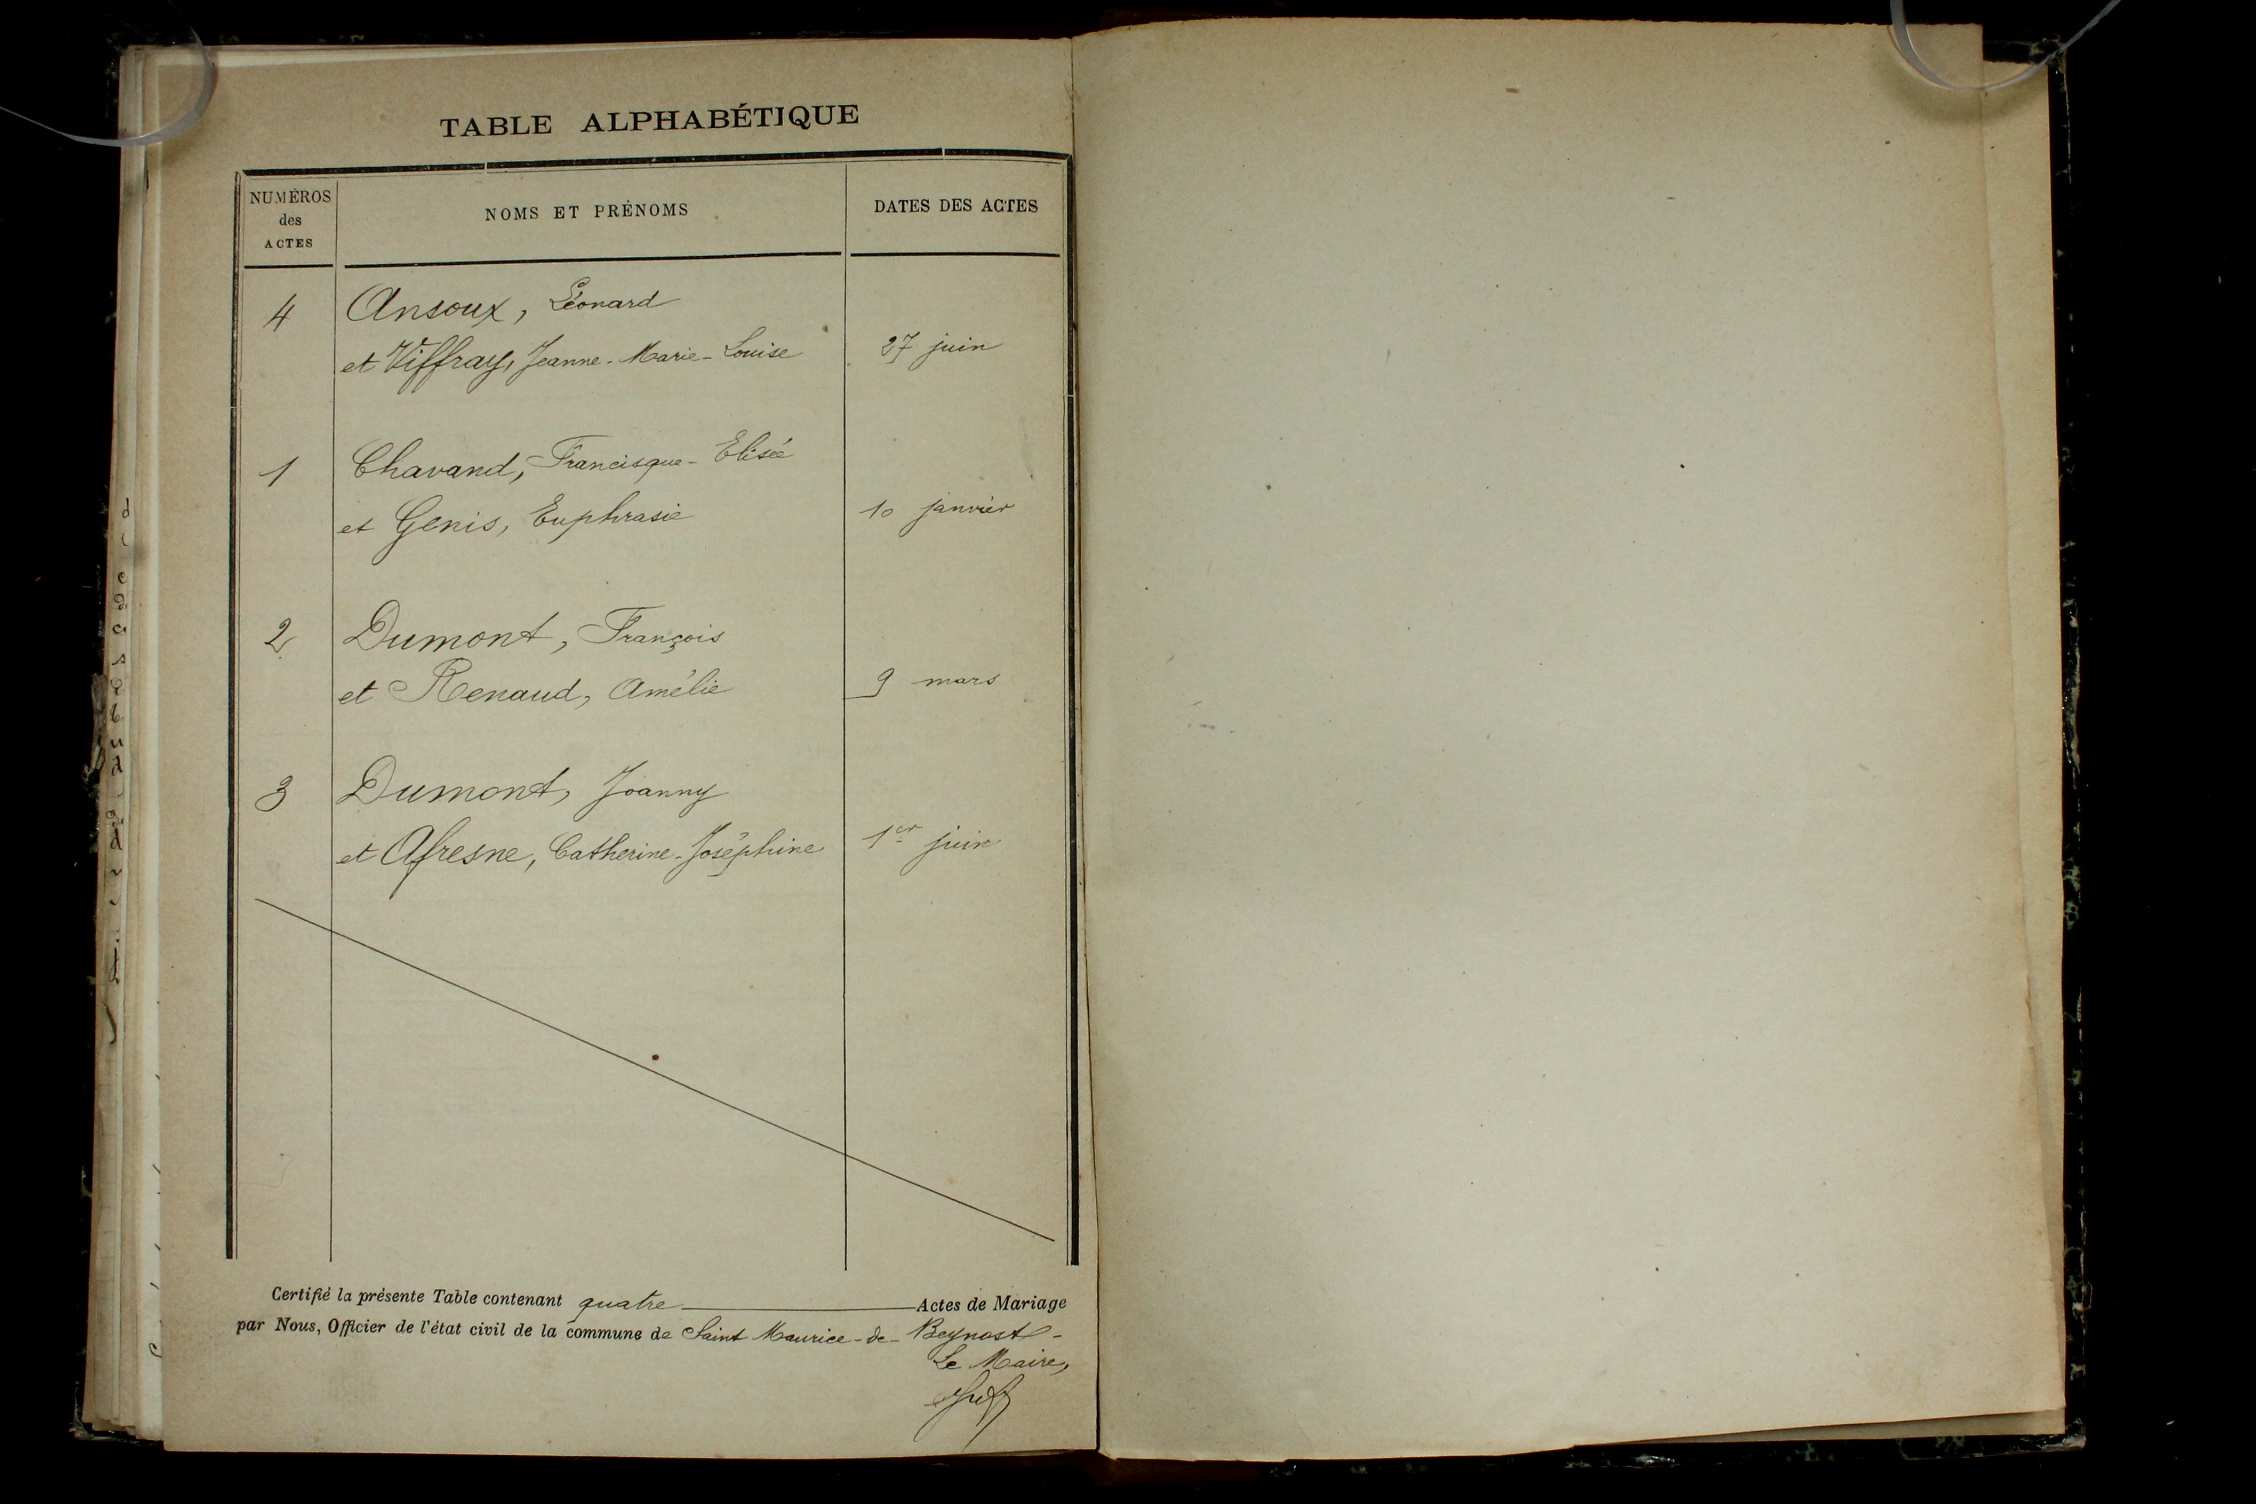 TABLE ALPHABÉTIQUE
NUMÉROS des ACTES
NOMS ET PRÉNOMS
DATES DES ACTES
4 Ansoux, Léonard
et Viffray, Jeanne-Marie-Louise 27 juin
1 Chavand, Francisque-Elisée
et Genis, Euphrasie 10 janvier
2 Dumont, François
et Renaud, Amélie 9 mars
3 Dumont, Joanny
et Afresne, Catherine-Joséphine 1er juin
Certifié la présente Table contenant quatre Actes de Mariage
par Nous, Officier de l'état civil de la commune de Saint Maurice-de-Beynost-
Le Maire,